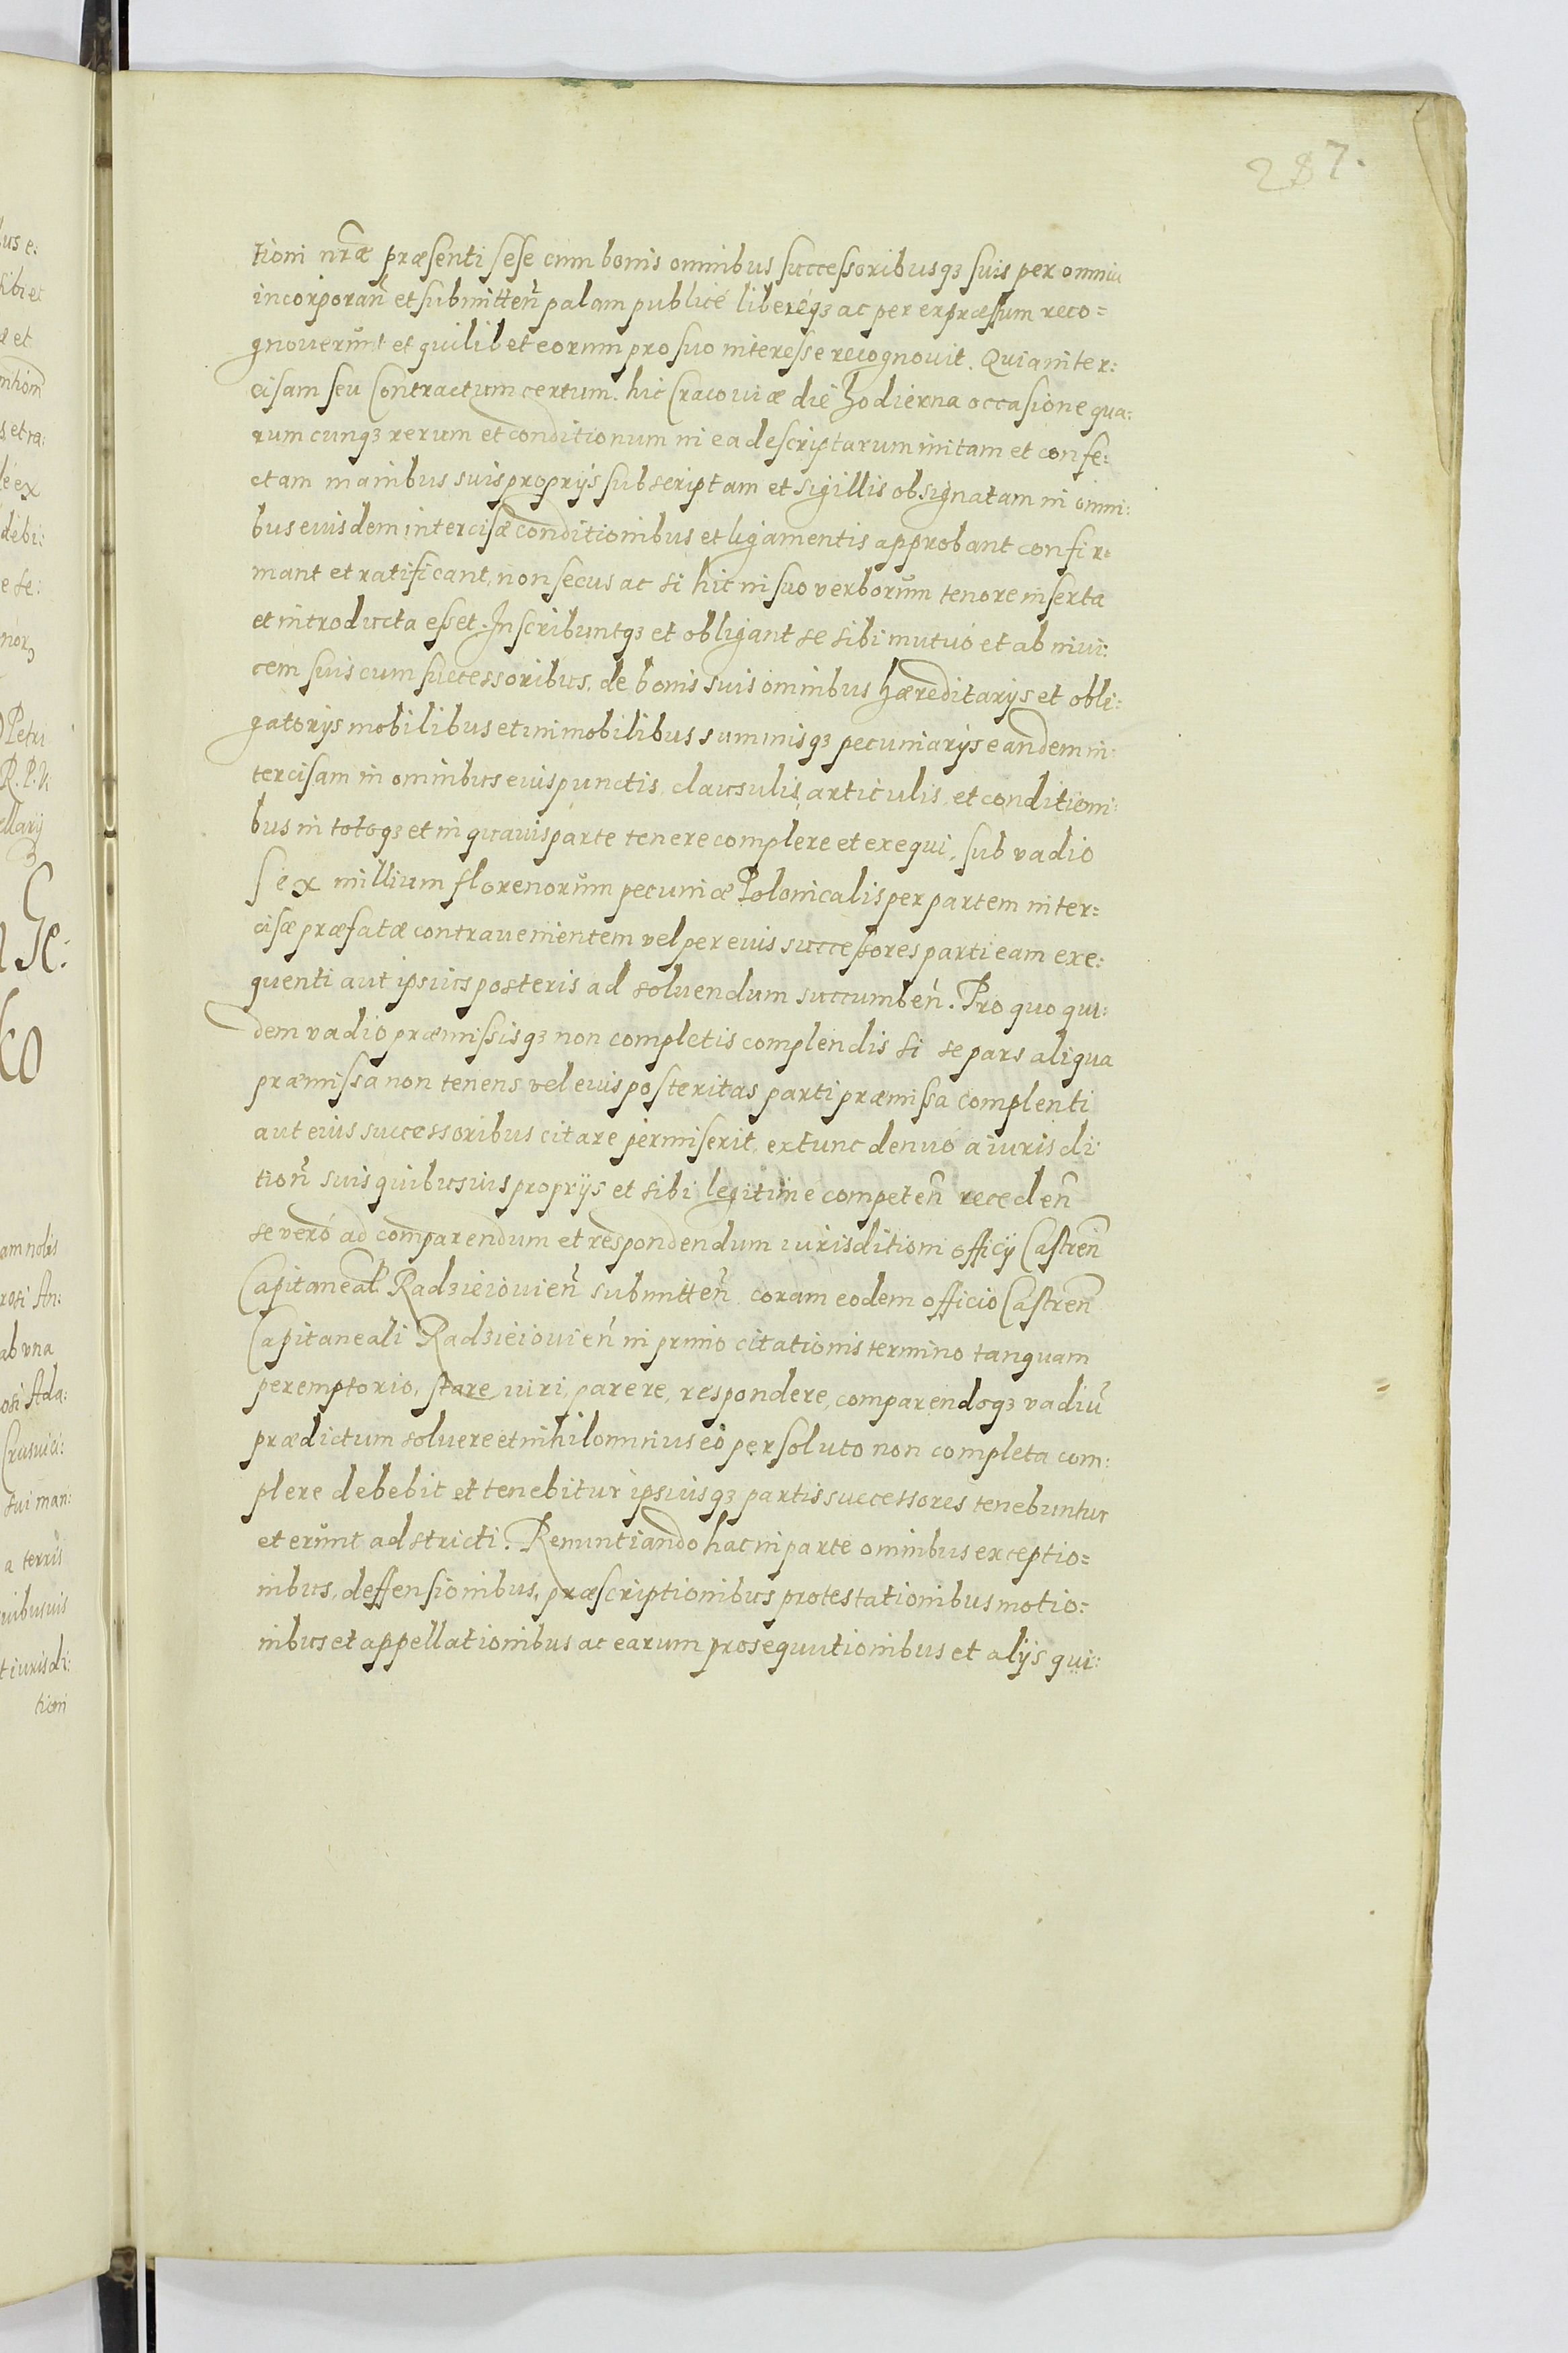 287.
tioni nr̃æ præsenti sese cum bonis omnibus successoribusqꝫ suis per omnia
incorporañ et submitteñ palam publicé liberéqꝫ ac per expræssum reco=
gnouerŭnt et quilibet eorum pro suo interesse recognouit. Quia inter:
cisam seu Contractum certum. hic Cracouiæ die hodierna occasione qua:
rum cunqꝫ rerum et conditionum in ea descriptarum initam et confe:
ctam manibus suis proprijs subscriptam et sigillis obsignatam in omni:
bus euisdem intercisæ conditionibus et ligamentis approbant confir=
mant et ratificant, non secus ac si hic in suo verborŭm tenore inserta
et introducta esset. Inscribuntqꝫ et obligant se sibi mutuó et ab inui:
cem suis cum successoribus, de bonis suis omnibus hæreditarijs et obli:
gatorijs mobilibus et immobilibus summisqꝫ pecuniarijs eandem in:
tercisam in omnibus eius punctis, clausulis, articulis, et conditioni:
bus in totoqꝫ et in quauis parte tenere complere et exequi, sub vadio
Sex millium florenorŭm pecuniæ Polonicalis per partem inter=
cisæ præfatæ contrauenientem vel per euis successores parti eam exe:
quenti aut ipsius posteris ad soluendum succumbeñ. Pro quo qui:
dem vadio præmissisqꝫ non completis complendis si se pars aliqua
præmissa non tenens vel euis posteritas parti præmissa complenti
aut eius successoribus citare permiserit, extunc denuó a iurisdi:
tioñ suis quibusuis proprijs et sibi legitime competeñ recedeñ
se veró ad comparendum et respondendum iurisditioni officij Castreñ
Capitaneal Radzieiouieñ submitteñ coram eodem officio Castreñ
Capitaneali Radzieiouieñ in primo citationis termino tanquam
peremptorio, stare iuri, parere, respondere, comparendoqꝫ vadiũ
prædictum soluere et nihilominus eó persoluto non completa com:
plere debebit et tenebitur ipsiusqꝫ partis successores tenebuntur
et erŭnt adstricti. Renuntiando hac in parte omnibus exceptio=
nibus, deffensionibus, præscriptionibus protestationibus motio=
nibus et appellationibus ac earum prosequutionibus et alijs qui: